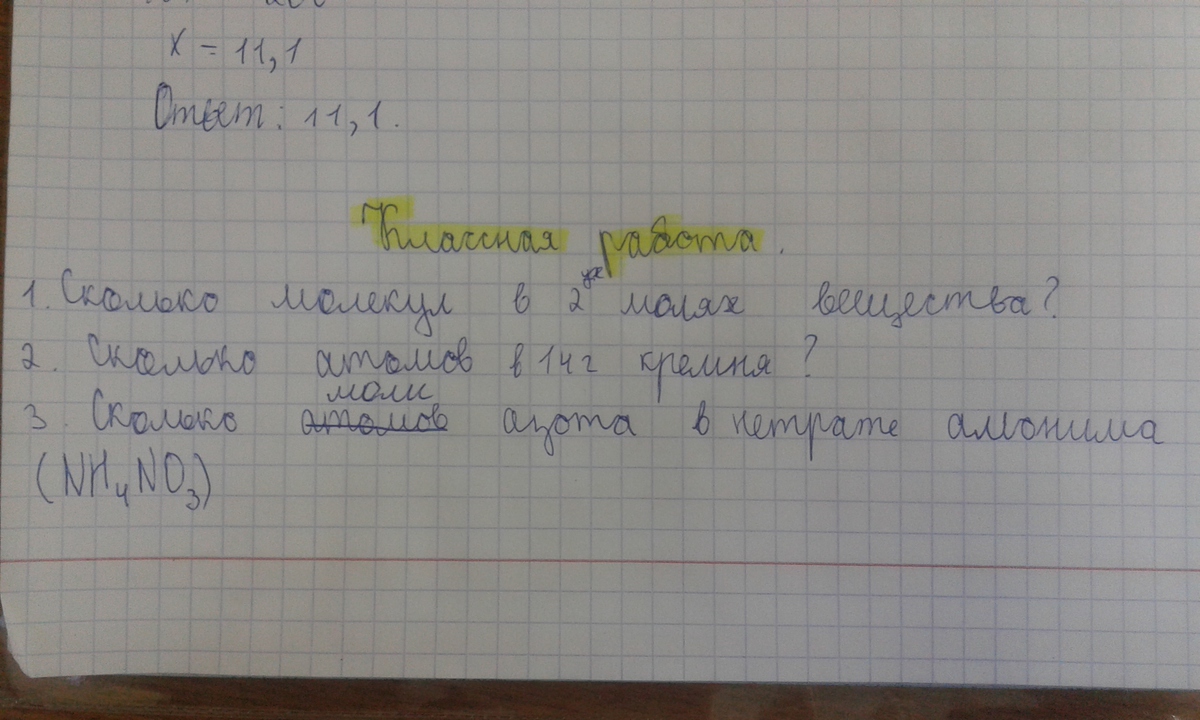 х = 11,1
Ответ: 11,1.
Классная работа.
1. Сколько молекул в 2ух молях вещества?
2. Сколько атомов в 14г кремня?
моли
3. Сколько атомов азота в нетрате амонима
(NH₄NO₃)